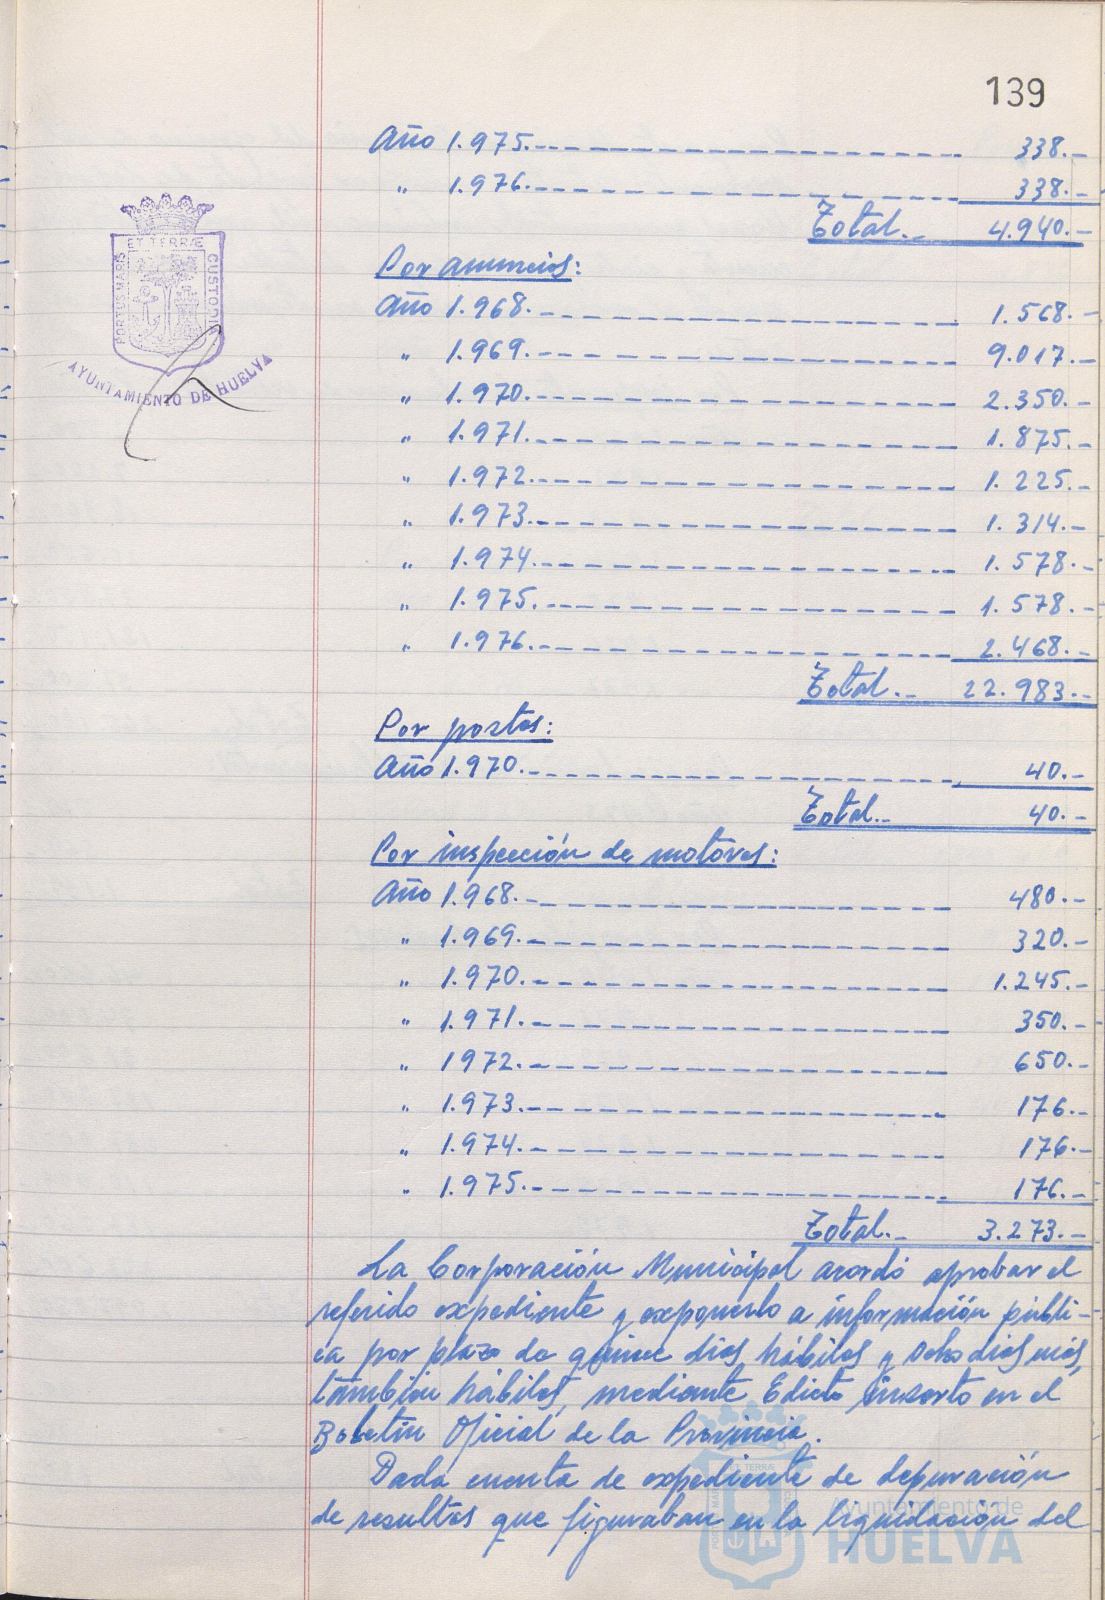 139
Año 1.975.- 338.-
" 1.976.- 338.-
Total.- 4.940.-
Por anuncios:
Año 1.968.- 1.568.-
" 1.969.- 9.017.-
" 1.970.- 2.350.-
" 1.971.- 1.875.-
" 1.972.- 1.225.-
" 1.973.- 1.314.-
" 1.974.- 1.578.-
" 1.975.- 1.578.-
" 1.976.- 2.468.-
Total.- 22.983.-
Por postes:
Año 1.970.- 40.-
Total.- 40.-
Por inspección de motores:
Año 1.968.- 480.-
" 1.969.- 320.-
" 1.970.- 1.245.-
" 1.971.- 350.-
" 1972.- 650.-
" 1.973.- 176.-
" 1.974.- 176.-
" 1.975.- 176.-
Total.- 3.273.-
La Corporación Municipal acordó aprobar el
referido expediente y exponerlo a información públi-
ca por plazo de quince dias hábiles y ocho dias más,
también hábiles, mediante Edicto inserto en el
Boletín Oficial de la Provincia.
Dada cuenta de expediente de depuración
de resultas que figuraban en la liquidación del
PORTUS MARIS ET TERRÆ CUSTODI
AYUNTAMIENTO DE HUELVA
Ayuntamiento de
HUELVA